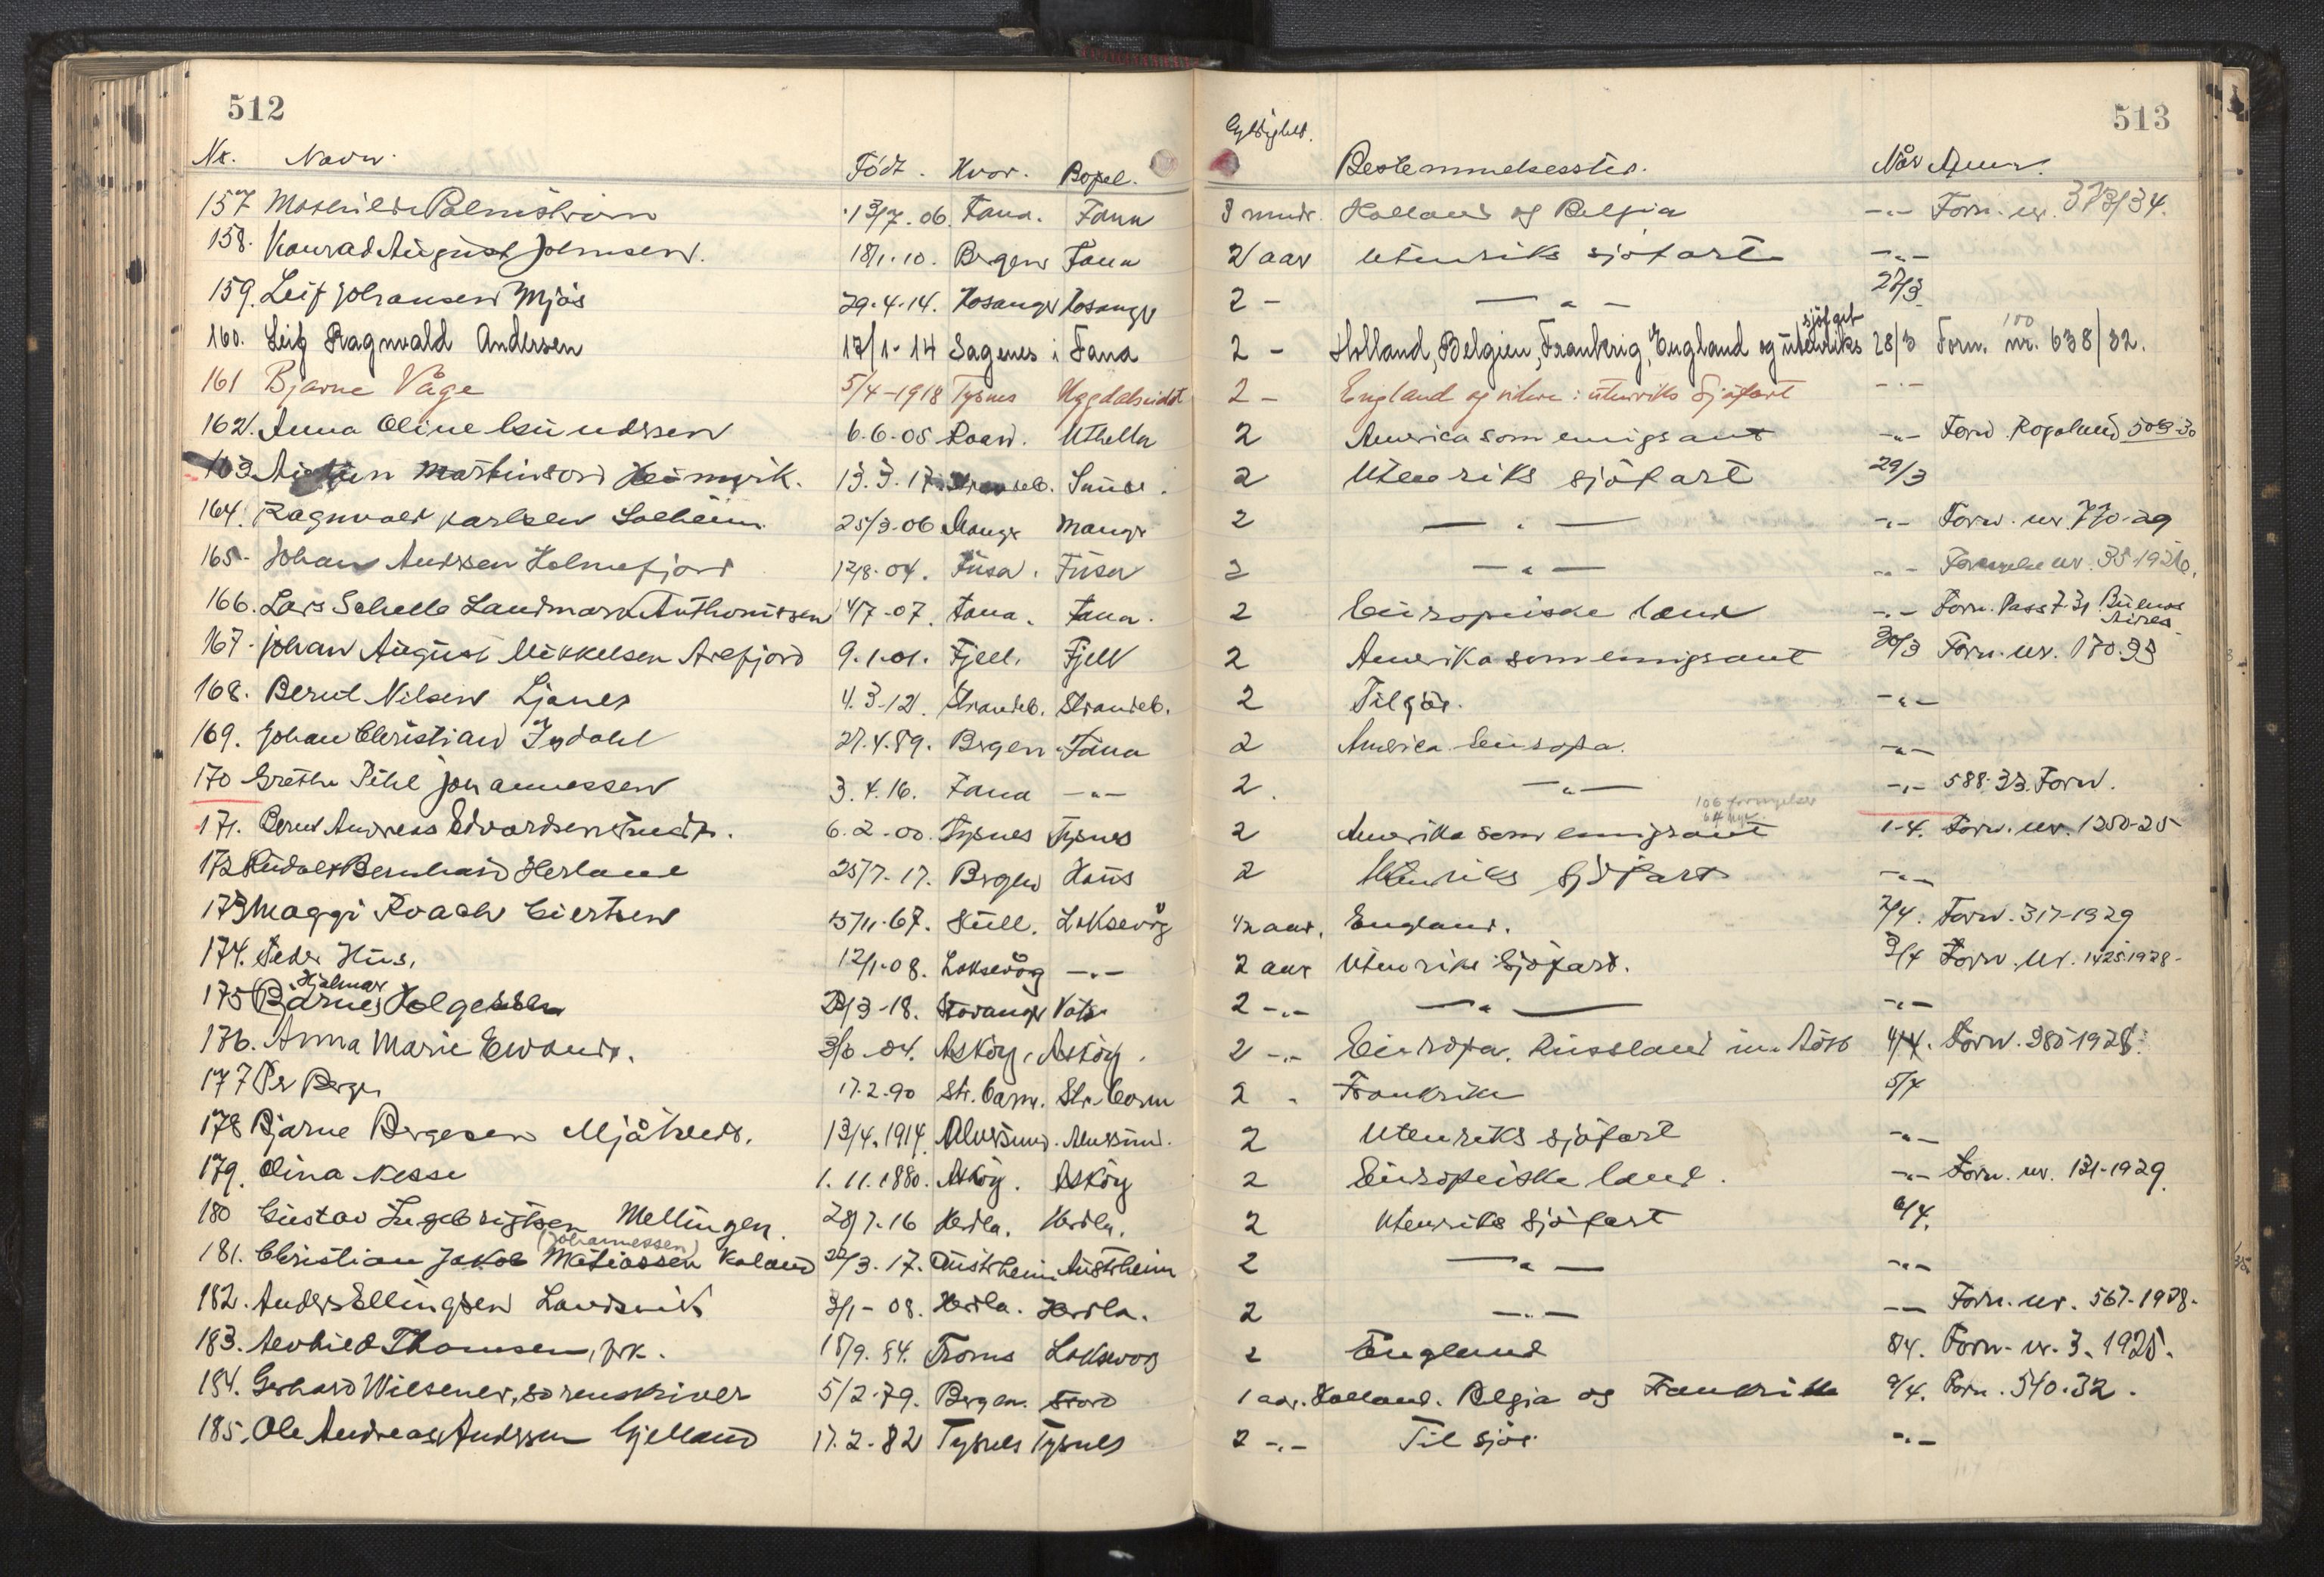 512
513
Nr. Navn. Födt. Hvor. Bopel. Gyldighet. Bestemmelsessted. Når Anm.
157 Palmström 13/7.06. Fana. Fana 3 mndr. Holland og Belgia -"- Forn. nr. 373/34.
158. Konrad August Johnsen. 18/1.10. Bergen Fana 2 aar Utenriks sjöfart -"-
159. Leif Johansen Mjös 29.4.14. Hosanger Hosanger 2 - -"- 27/3
160. Leif Ragnvald Andersen 17/1-14 Sagenes i Fana 2 - Holland, Belgien, Frankrig, England og utenriks sjöfart 28/3 Forn. 100 nr. 638/32.
161 Bjarne Våge 5/4-1918 Tysnes Uggdalseidet 2 - England og videre: utenriks Sjöfart -"-
162. Anna Oline 6.6.05 2 America som emigrant -"- Forn. Rogaland 503-30
163 Martinson Heimvik. 13.3.17. Strandeb. 2 Utenriks sjöfart 29/3
164. Ragnvald Karlsen Solheim. 25/3-06 Manger Manger 2 -"- -"- Forn. nr. 770-29
165- Johan Andersen Holmefjord 12/8-04. Fusa. Fusa 2 -"- -"- Fornyelse nr. 35-1926.
166. Lars Schelle Landmark Anthonissen 4/7-07. Fana. Fana. 2 Europeiske land -"- Forn. Pass 7-31 Buenos Aires
167. Johan August Mikkelsen Arefjord 9.1.01. Fjell. Fjell 2 Amerika som emigrant 30/3 Forn. nr. 170.33
168. Bernt Nilsen Ljones 4.3.12. Strandeb. Strandeb. 2 Til sjös. -"-
169. Johan Christian Irdahl 27.4.89. Bergen Fana 2 America Europa. -"-
170 Grethe Pihl Johannessen 3.4.16. Fana -"- 2. -"- -"- 588-33. Forn.
106 fornyelser
64 nye.
171. Bernt Andreas Edvardsen 6.2.00. Tysnes Tysnes 2 Amerika som emigrant 1-4. Forn. nr. 1250-25
172 Rudolf Bernhard Herland 25/7.17. Bergen Haus 2 Utenriks Sjöfart -"-
173 Maggi Roach Eiertsen 15/11.67. Hull. Laksevåg 1/2 aar. England. 2/4. Forn. 317-1929
174. Peder Hus. 12/1-08. Laksevåg -"- 2 aar Utenriks Sjöfart. 3/4 Forn. Nr. 1425-1928-
175 Bjarne Hjalmar Holgersen /3-18. Stavanger 2 -"- -"- -"-
176. Anna Marie 3/6-04. Asköy, Asköy. 2 -"- Europa. Russland 4/4. Forn. 380-1928.
177 Per Berge 17.2.90 Str.barm. Str.barm 2 - Frankrike 5/4
178 Bjarne Bergesen Mjåtveit. 13/4.1914. Alversund. Alversund. 2 Utenriks sjöfart -"-
179. Olina Nesse 1.11.1880. Asköy. Asköy 2 Europeiske land. -"- Forn. nr. 131-1929.
180 Gustav Ingebrigtsen Mellingen. 28/7.16 Herdla. Herdla. 2 Utenriks Sjöfart 6/4.
181. Christian Jakob Matiassen (Johannessen) Kaland 22/3.17. Austrheim Austrheim 2 -"- -"-
182. Anders Ellingsen Landsvik 3/1-08. Herdla. Herdla. 2 -"- -"- Forn. nr. 567-1928-
183. Thomsen, frk. 18/9.84. Troms Laksevog 2 England 8/4. Forn. nr. 3. 1925.
184. Gerhard Wiesener, sorenskriver 5/2-79. Bergen. Stord 1 aar. Holland. Belgia og Frankrike 9/4. Forn. 540.32.
185. Ole Andreas Andersen Gjelland 17.2.82 Tysnes Tysnes 2 -"- Til sjös. -"-